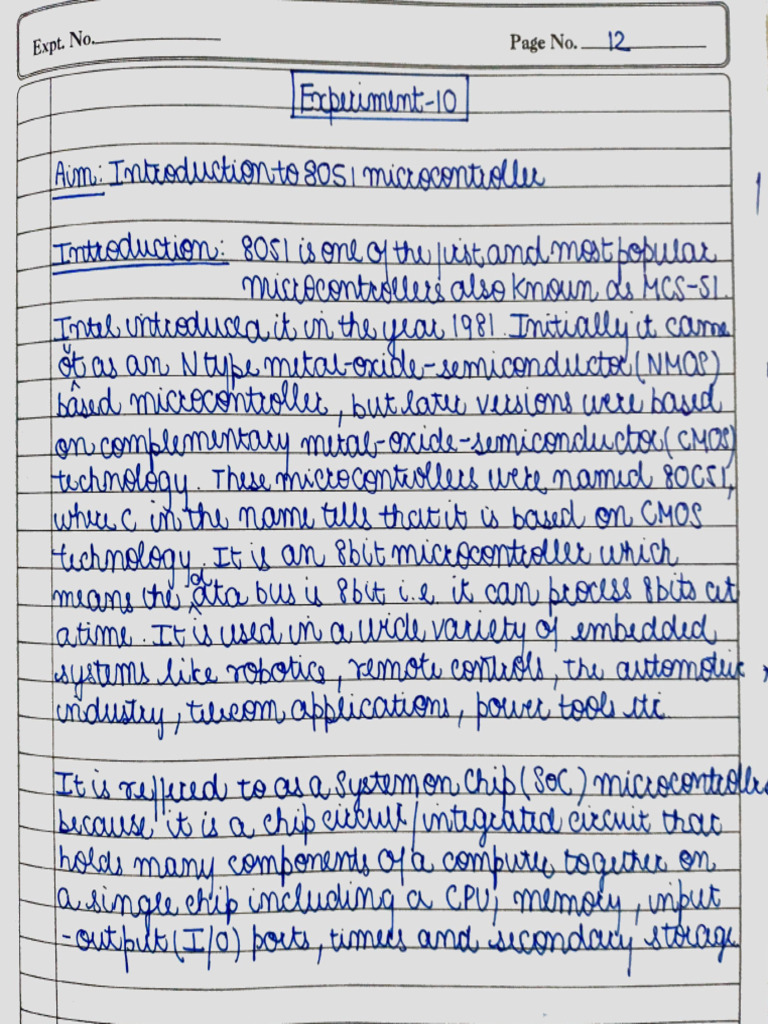 Expt. No.
Page No. 12
Experiment-10
Aim: Introduction to 8051 microcontroller
Introduction: 8051 is one of the first and most popular
microcontrollers also known as MCS-51.
Intel introduced it in the year 1981. Initially it came
as an N type metal-oxide-semiconductor (NMOS)
based microcontroller, but later versions were based
on complementary metal-oxide-semiconductor (CMOS)
technology. These microcontrollers were named 80C51,
where C in the name tells that it is based on CMOS
technology. It is an 8bit microcontroller which
means the data bus is 8bit i.e. it can process 8bits at
a time. It is used in a wide variety of embedded
systems like robotics, remote controls, the automotive
industry, telecom applications, power tools etc.
It is reffered to as a System on Chip (SoC) microcontroller
because it is a chip circuit/integrated circuit that
holds many components of a computer together on
a single chip including a CPU, memory, input
-output (I/O) ports, timers and secondary storage